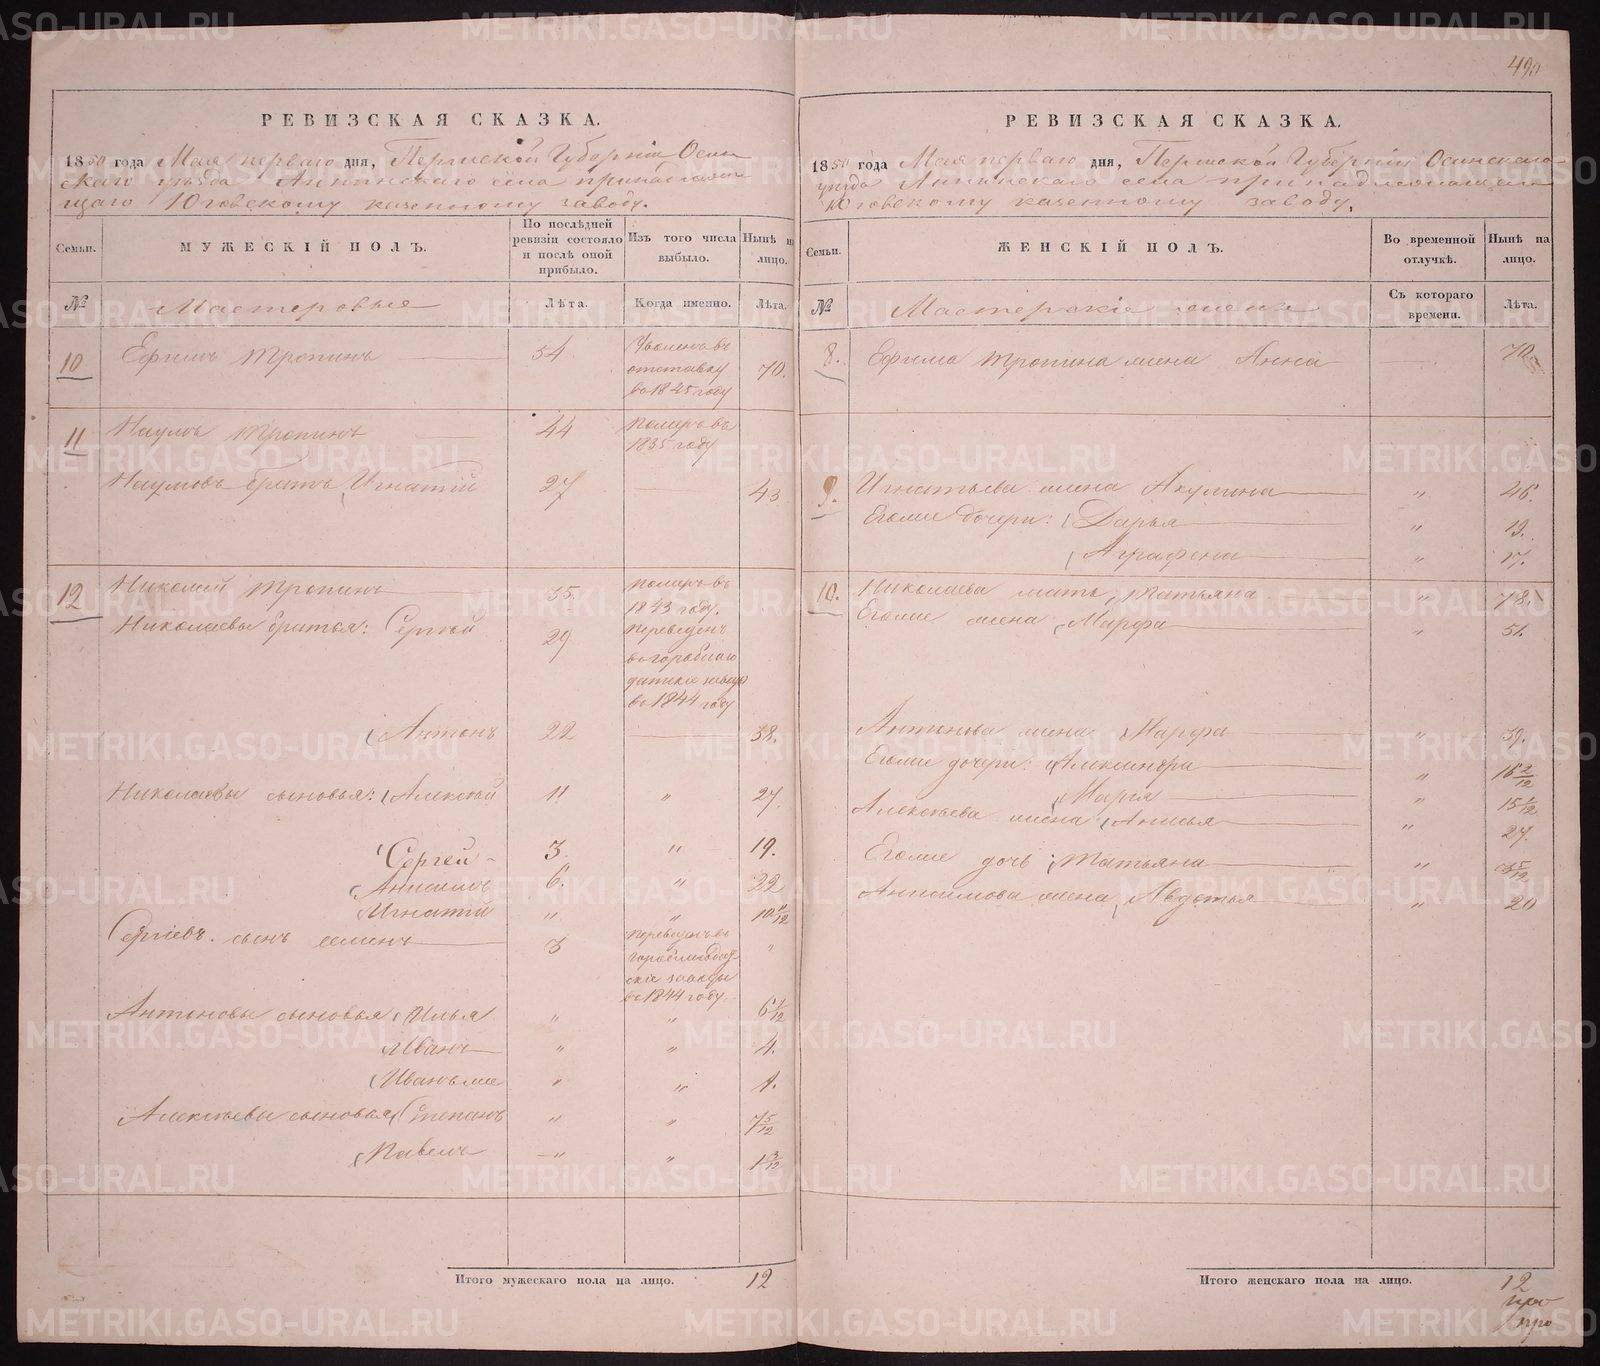 490
РЕВИЗСКАЯ СКАЗКА.
1850 года Мая перваго дня, Пермской Губерніи Осин-
скаго уѣзда Аннинскаго села принадлежа-
щаго Юговскому казенному заводу.
Семьи.
МУЖЕСКІЙ ПОЛЪ.
По послѣдней ревизіи состояло и послѣ оной прибыло.
Изъ того числа выбыло.
Нынѣ на лицо.
№
Мастеровые
Лѣта.
Когда именно.
Лѣта.
10 Ефимъ Тропинъ 54 Уволенъ въ отставку въ 1845 году 70.
11 Наумъ Тропинъ 44 Померъ въ 1835 году
Наумовъ братъ Игнатій 27 43
12 Николай Тропинъ 55. померъ въ 1843 году.
Николаевы братья: Сергей 29 переведенъ въ гороблаго датскіе заводы въ 1844 году
Антонъ 22 38.
Николаевы сыновья: Алексѣй 11 " 27.
Сергей 3. " 19.
Анисимъ 6. " 22
Игнатій " " 10 11/12
Сергіевъ сынъ Семенъ 3 переведенъ въ гороблагодатскіе заводы въ 1844 году. "
Антоновы сыновья Илья " " 6 1/12
Иванъ " " 4.
Иванъ же " " 1.
Алексѣевы сыновья Степанъ " " 7 5/12
Павелъ " " 1 3/12
Итого мужескаго пола на лицо. 12
РЕВИЗСКАЯ СКАЗКА.
1850 года Мая перваго дня, Пермской Губерніи Осинскаго
уѣзда Аннинскаго села принадлежащаго
Юговскому казенному заводу.
Семьи.
ЖЕНСКІЙ ПОЛЪ.
Во временной отлучкѣ.
Нынѣ на лицо.
№
Мастерскіе жены
Съ котораго времени.
Лѣта.
8. Ефима Тропина жена Анна 70.
9. Игнатьева жена Акулина " 46.
Егоже дочери: Дарья " 19.
Аграфена " 17.
10. Николаева мать Татьяна " 78.
Егоже жена Марфа " 51.
Антонова жена Марфа " 39.
Егоже дочери: Александра " 16 2/12
Марія " 15 1/12
Алексѣева жена Анисья " 27.
Егоже дочь Татьяна " 3 5/12
Анисимова жена Авдотья " 20
Итого женскаго пола на лицо. 12
METRIKI.GASO-URAL.RU